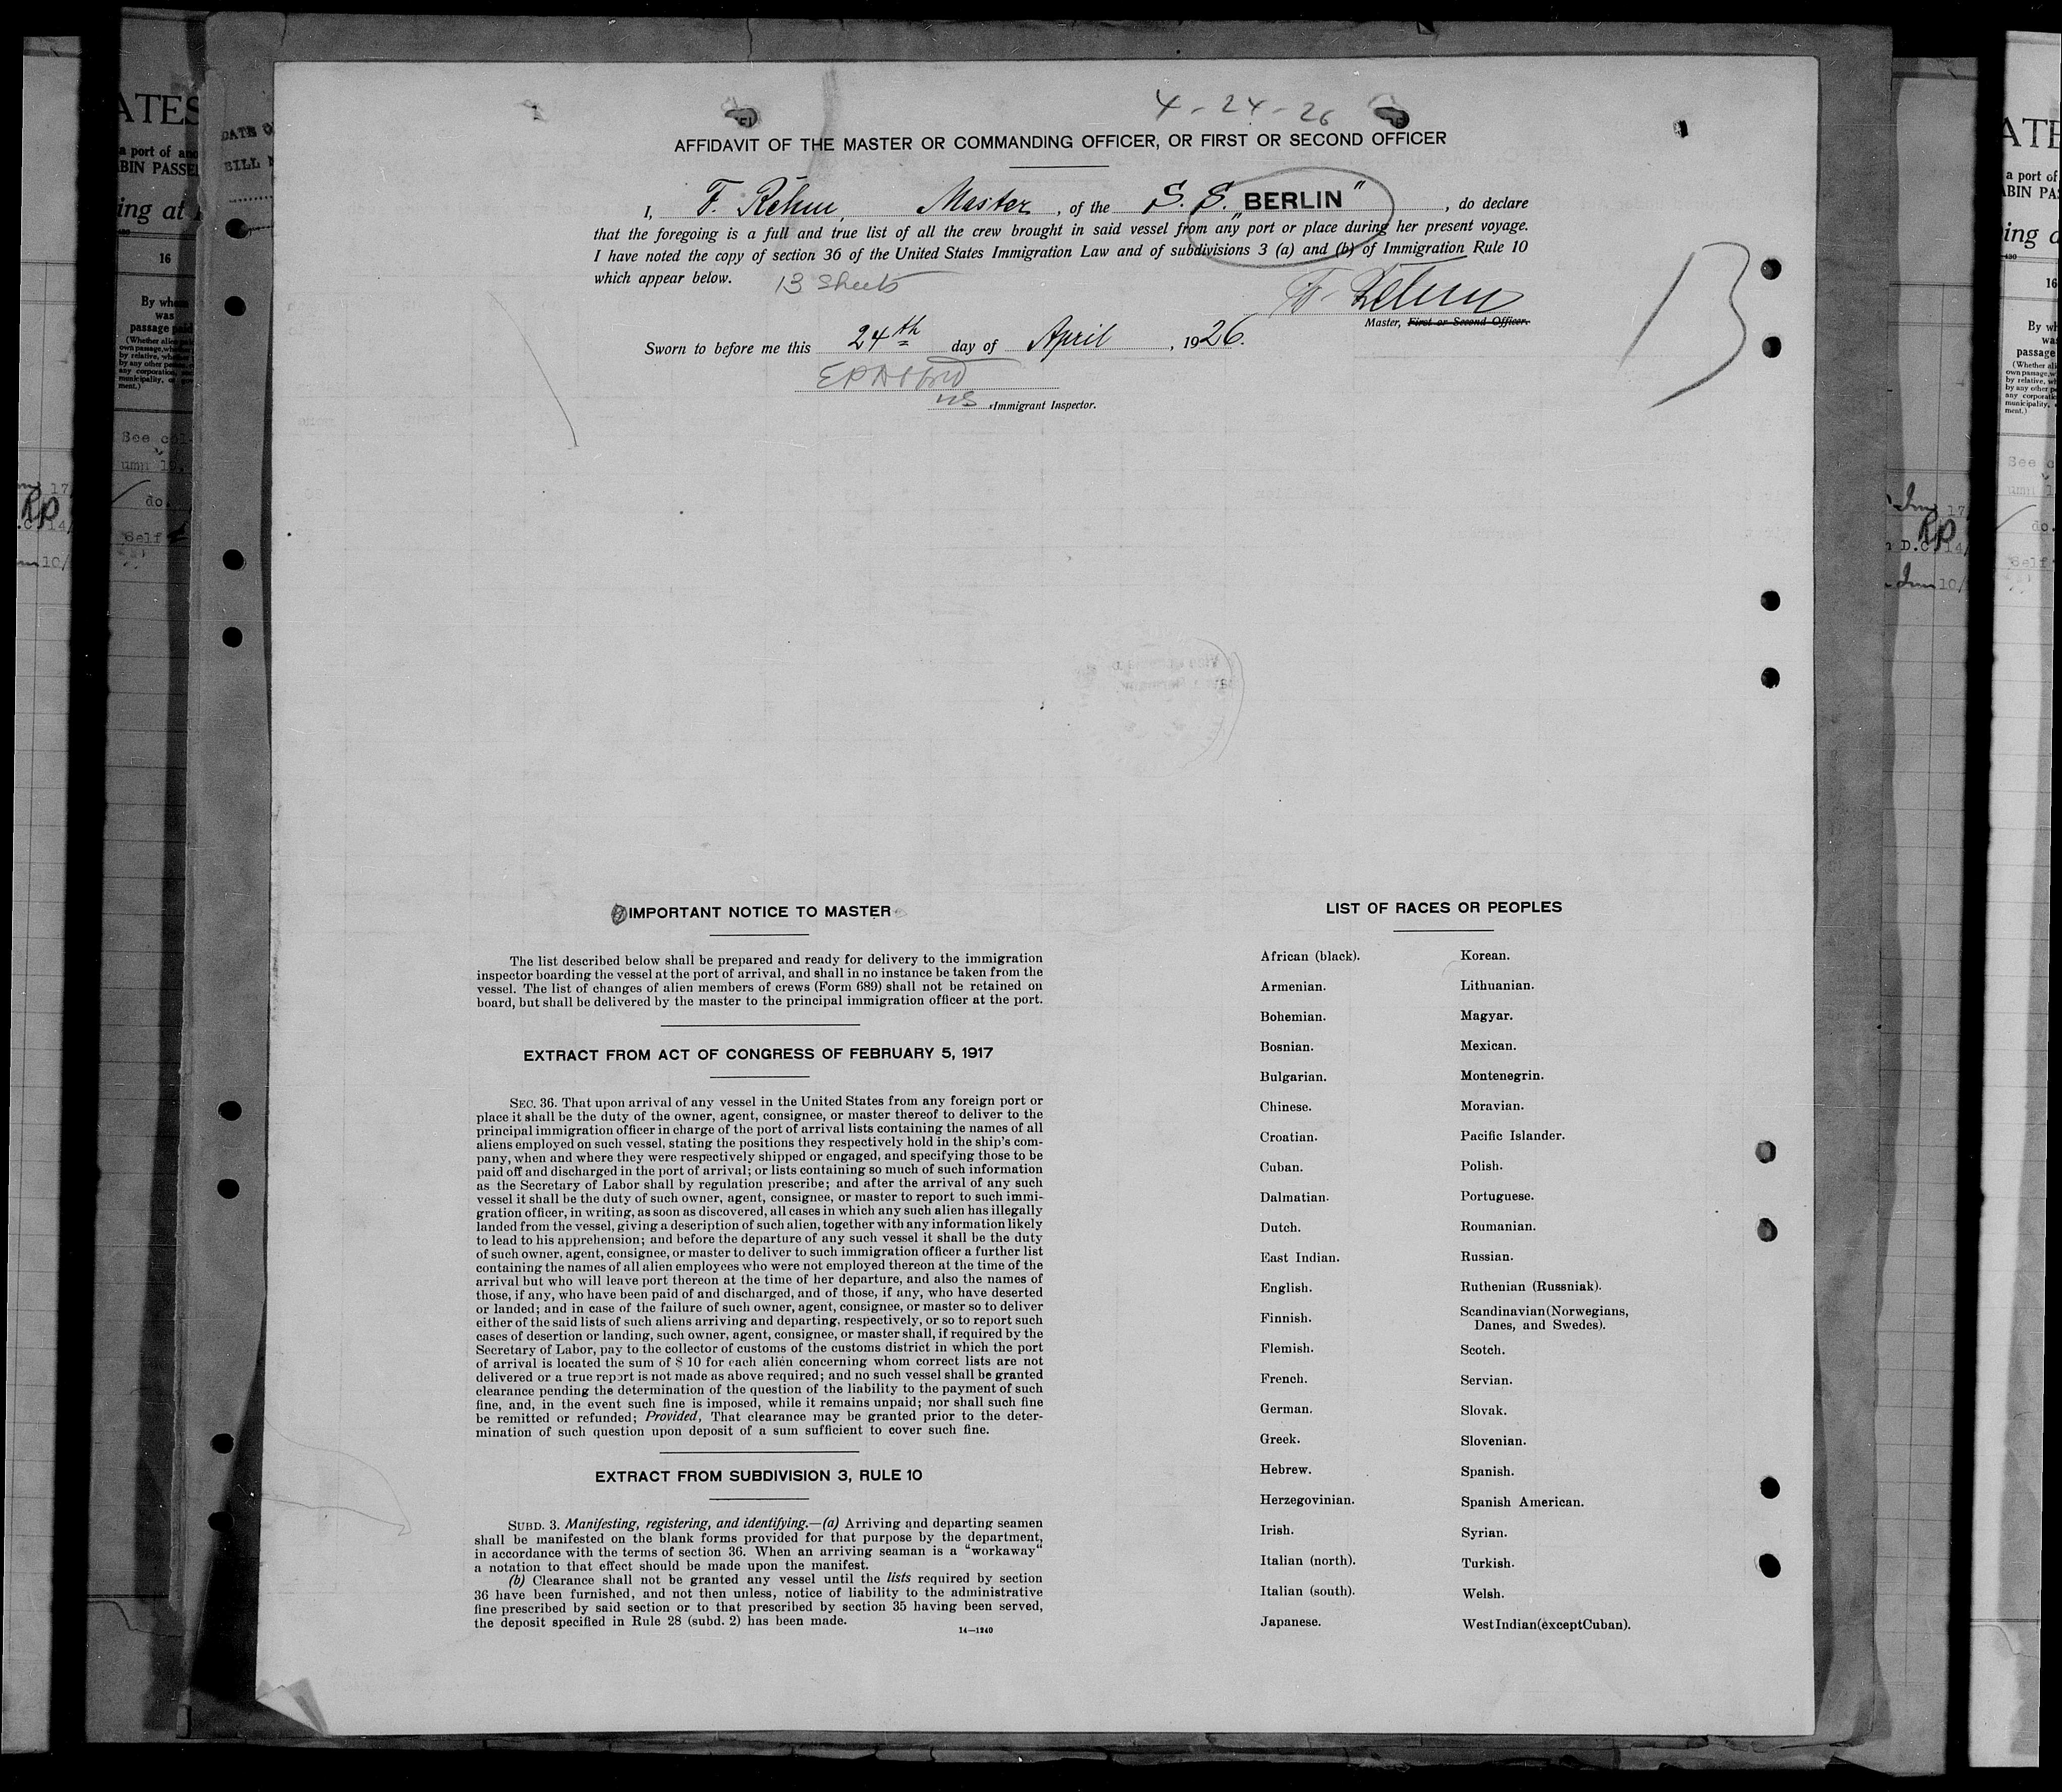 4-24-26
AFFIDAVIT OF THE MASTER OR COMMANDING OFFICER, OR FIRST OR SECOND OFFICER
I, F. Rehm, Master, of the S. S. „BERLIN", do declare
that the foregoing is a full and true list of all the crew brought in said vessel from any port or place during her present voyage.
I have noted the copy of section 36 of the United States Immigration Law and of subdivisions 3 (a) and (b) of Immigration Rule 10
which appear below. 13 Sheets
F. Rehm
Master, First or Second Officer.
13
Sworn to before me this 24th day of April, 1926.
US Immigrant Inspector.
IMPORTANT NOTICE TO MASTER
The list described below shall be prepared and ready for delivery to the immigration
inspector boarding the vessel at the port of arrival, and shall in no instance be taken from the
vessel. The list of changes of alien members of crews (Form 689) shall not be retained on
board, but shall be delivered by the master to the principal immigration officer at the port.
EXTRACT FROM ACT OF CONGRESS OF FEBRUARY 5, 1917
SEC. 36. That upon arrival of any vessel in the United States from any foreign port or
place it shall be the duty of the owner, agent, consignee, or master thereof to deliver to the
principal immigration officer in charge of the port of arrival lists containing the names of all
aliens employed on such vessel, stating the positions they respectively hold in the ship's com-
pany, when and where they were respectively shipped or engaged, and specifying those to be
paid off and discharged in the port of arrival; or lists containing so much of such information
as the Secretary of Labor shall by regulation prescribe; and after the arrival of any such
vessel it shall be the duty of such owner, agent, consignee, or master to report to such immi-
gration officer, in writing, as soon as discovered, all cases in which any such alien has illegally
landed from the vessel, giving a description of such alien, together with any information likely
to lead to his apprehension; and before the departure of any such vessel it shall be the duty
of such owner, agent, consignee, or master to deliver to such immigration officer a further list
containing the names of all alien employees who were not employed thereon at the time of the
arrival but who will leave port thereon at the time of her departure, and also the names of
those, if any, who have been paid of and discharged, and of those, if any, who have deserted
or landed; and in case of the failure of such owner, agent, consignee, or master so to deliver
either of the said lists of such aliens arriving and departing, respectively, or so to report such
cases of desertion or landing, such owner, agent, consignee, or master shall, if required by the
Secretary of Labor, pay to the collector of customs of the customs district in which the port
of arrival is located the sum of $ 10 for each alien concerning whom correct lists are not
delivered or a true report is not made as above required; and no such vessel shall be granted
clearance pending the determination of the question of the liability to the payment of such
fine, and, in the event such fine is imposed, while it remains unpaid; nor shall such fine
be remitted or refunded; Provided, That clearance may be granted prior to the deter-
mination of such question upon deposit of a sum sufficient to cover such fine.
EXTRACT FROM SUBDIVISION 3, RULE 10
SUBD. 3. Manifesting, registering, and identifying.—(a) Arriving and departing seamen
shall be manifested on the blank forms provided for that purpose by the department,
in accordance with the terms of section 36. When an arriving seaman is a "workaway"
a notation to that effect should be made upon the manifest.
(b) Clearance shall not be granted any vessel until the lists required by section
36 have been furnished, and not then unless, notice of liability to the administrative
fine prescribed by said section or to that prescribed by section 35 having been served,
the deposit specified in Rule 28 (subd. 2) has been made.
14—1240
LIST OF RACES OR PEOPLES
African (black).
Armenian.
Bohemian.
Bosnian.
Bulgarian.
Chinese.
Croatian.
Cuban.
Dalmatian.
Dutch.
East Indian.
English.
Finnish.
Flemish.
French.
German.
Greek.
Hebrew.
Herzegovinian.
Irish.
Italian (north).
Italian (south).
Japanese.
Korean.
Lithuanian.
Magyar.
Mexican.
Montenegrin.
Moravian.
Pacific Islander.
Polish.
Portuguese.
Roumanian.
Russian.
Ruthenian (Russniak).
Scandinavian (Norwegians,
Danes, and Swedes).
Scotch.
Servian.
Slovak.
Slovenian.
Spanish.
Spanish American.
Syrian.
Turkish.
Welsh.
West Indian (except Cuban).